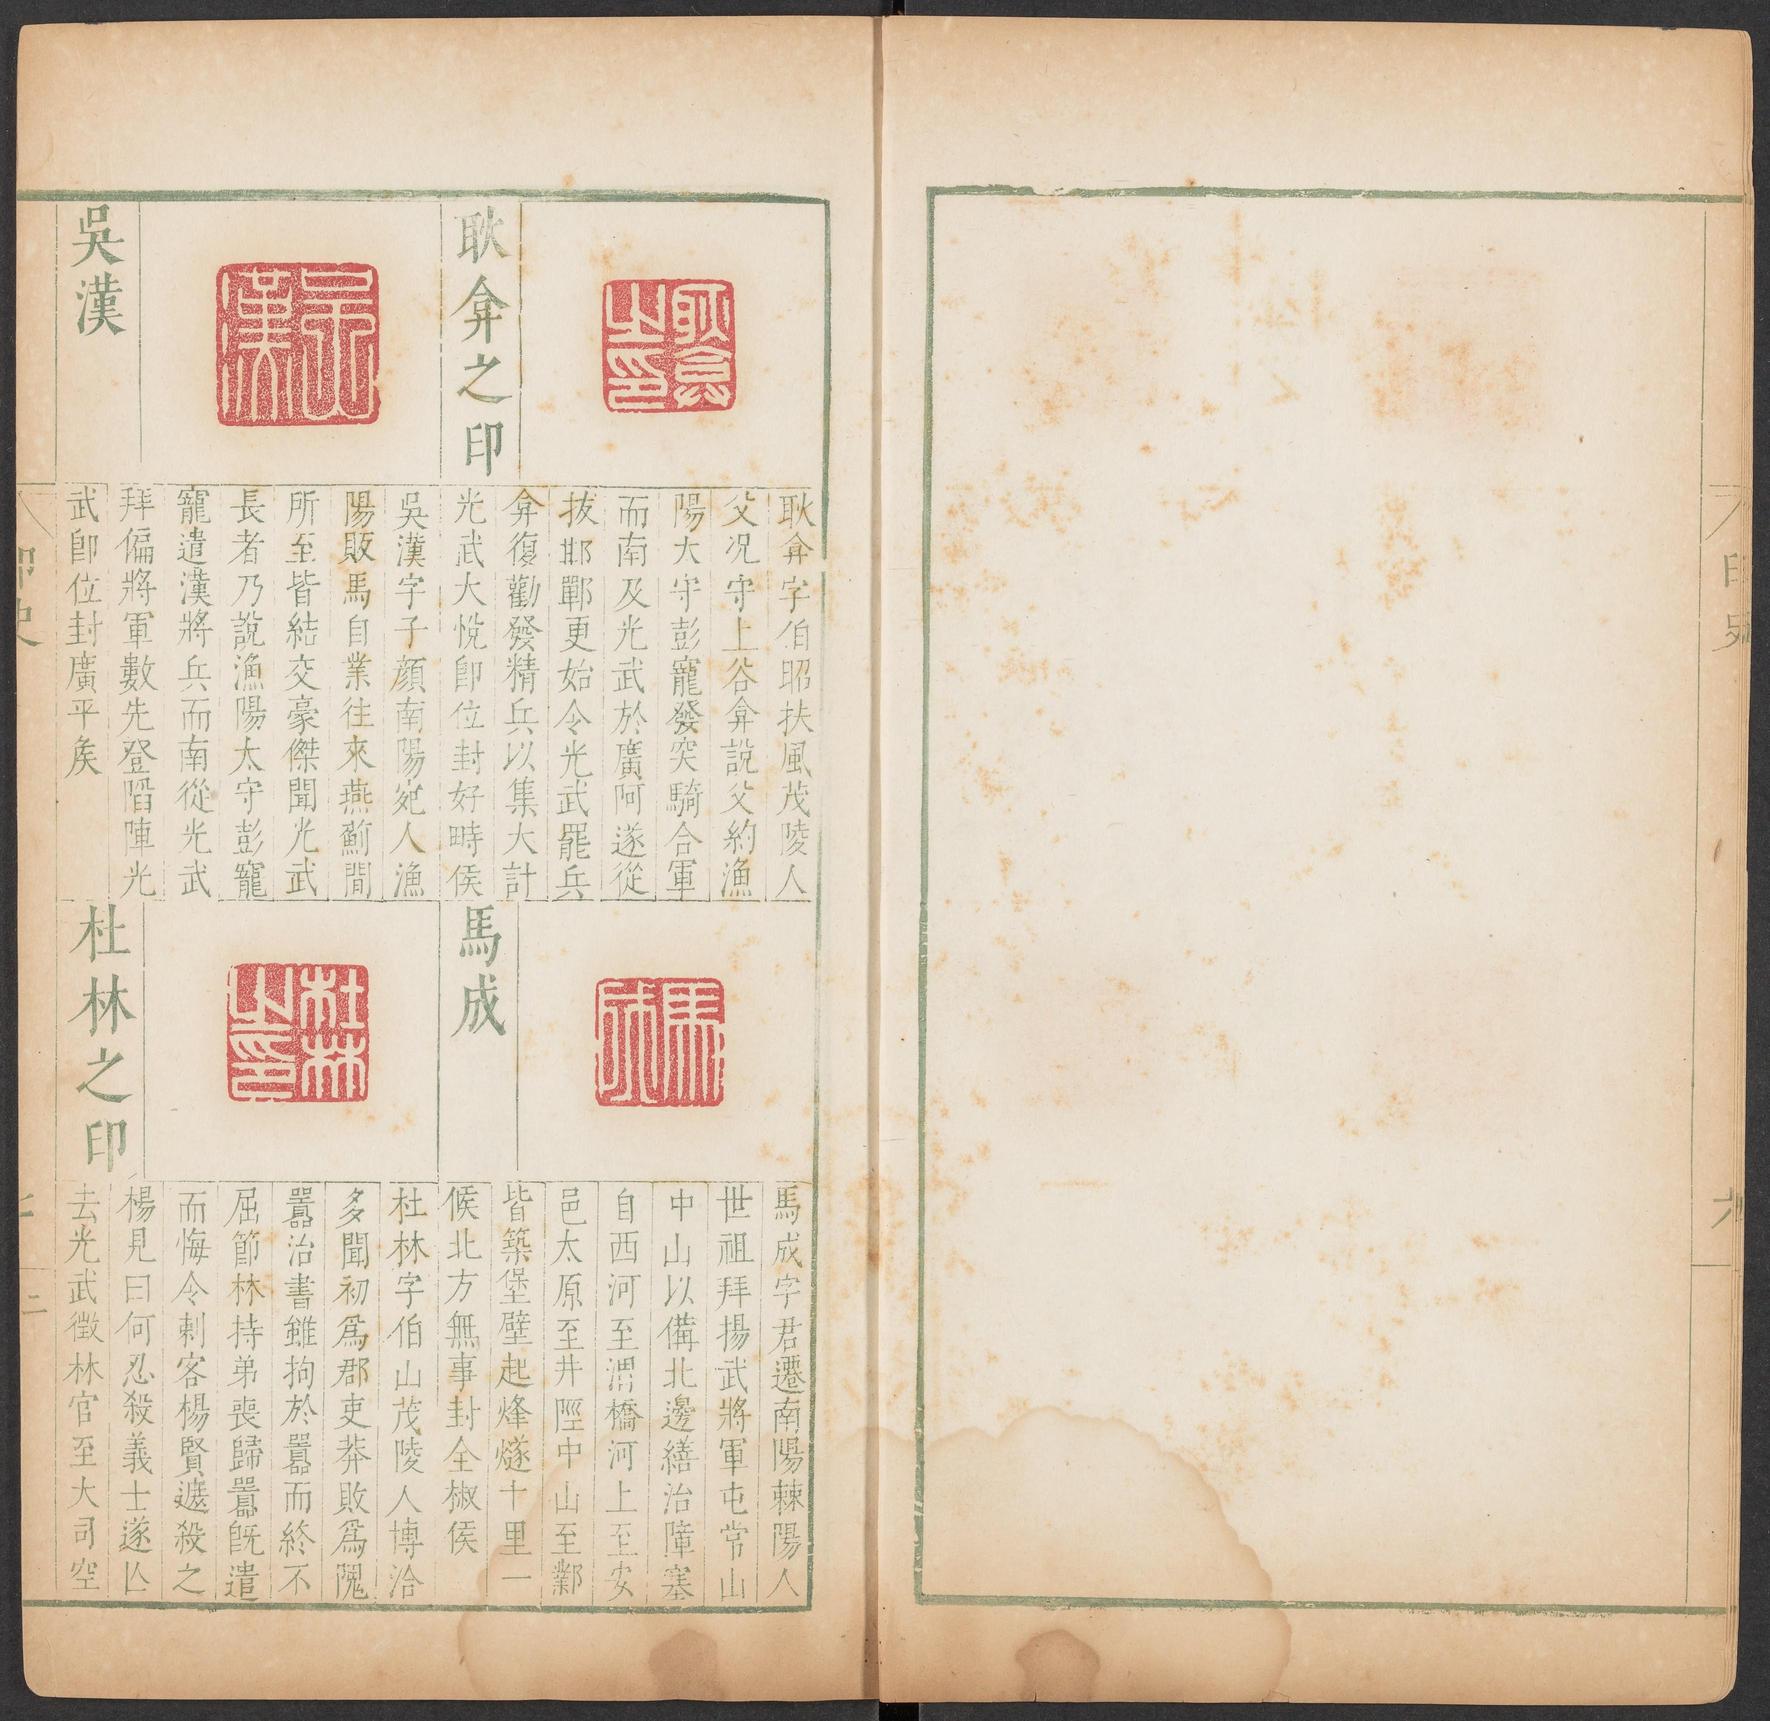 印史
六
耿弇之印
耿弇之印
吳漢
吳漢
耿弇字伯昭扶風茂陵人
父况守上谷弇說父約漁
陽大守彭寵發突騎合軍
而南及光武於廣阿遂從
拔邯鄲更始令光武罷兵
弇復勸發精兵以集大計
光武大悅卽位封好畤侯
吳漢字子顏南陽宛人漁
陽販馬自業往來燕薊間
所至皆結交豪傑聞光武
長者乃說漁陽太守彭寵
寵遣漢將兵而南從光武
拜偏將軍數先登陷陣光
武卽位封廣平矦
馬成
馬成
杜林之印
杜林之印
馬成字君遷南陽棘陽人
世祖拜揚武將軍屯常山
中山以備北邊繕治障塞
自西河至渭橋河上至安
邑太原至井陘中山至鄴
皆築堡壁起烽燧十里一
候北方無事封全椒侯
杜林字伯山茂陵人博洽
多聞初爲郡吏莽敗爲隗
囂治書雖拘於囂而終不
屈節林持弟喪歸囂旣遣
而悔令刺客楊賢遮殺之
楊見曰何忍殺義士遂亾
去光武徵林官至大司空
印史